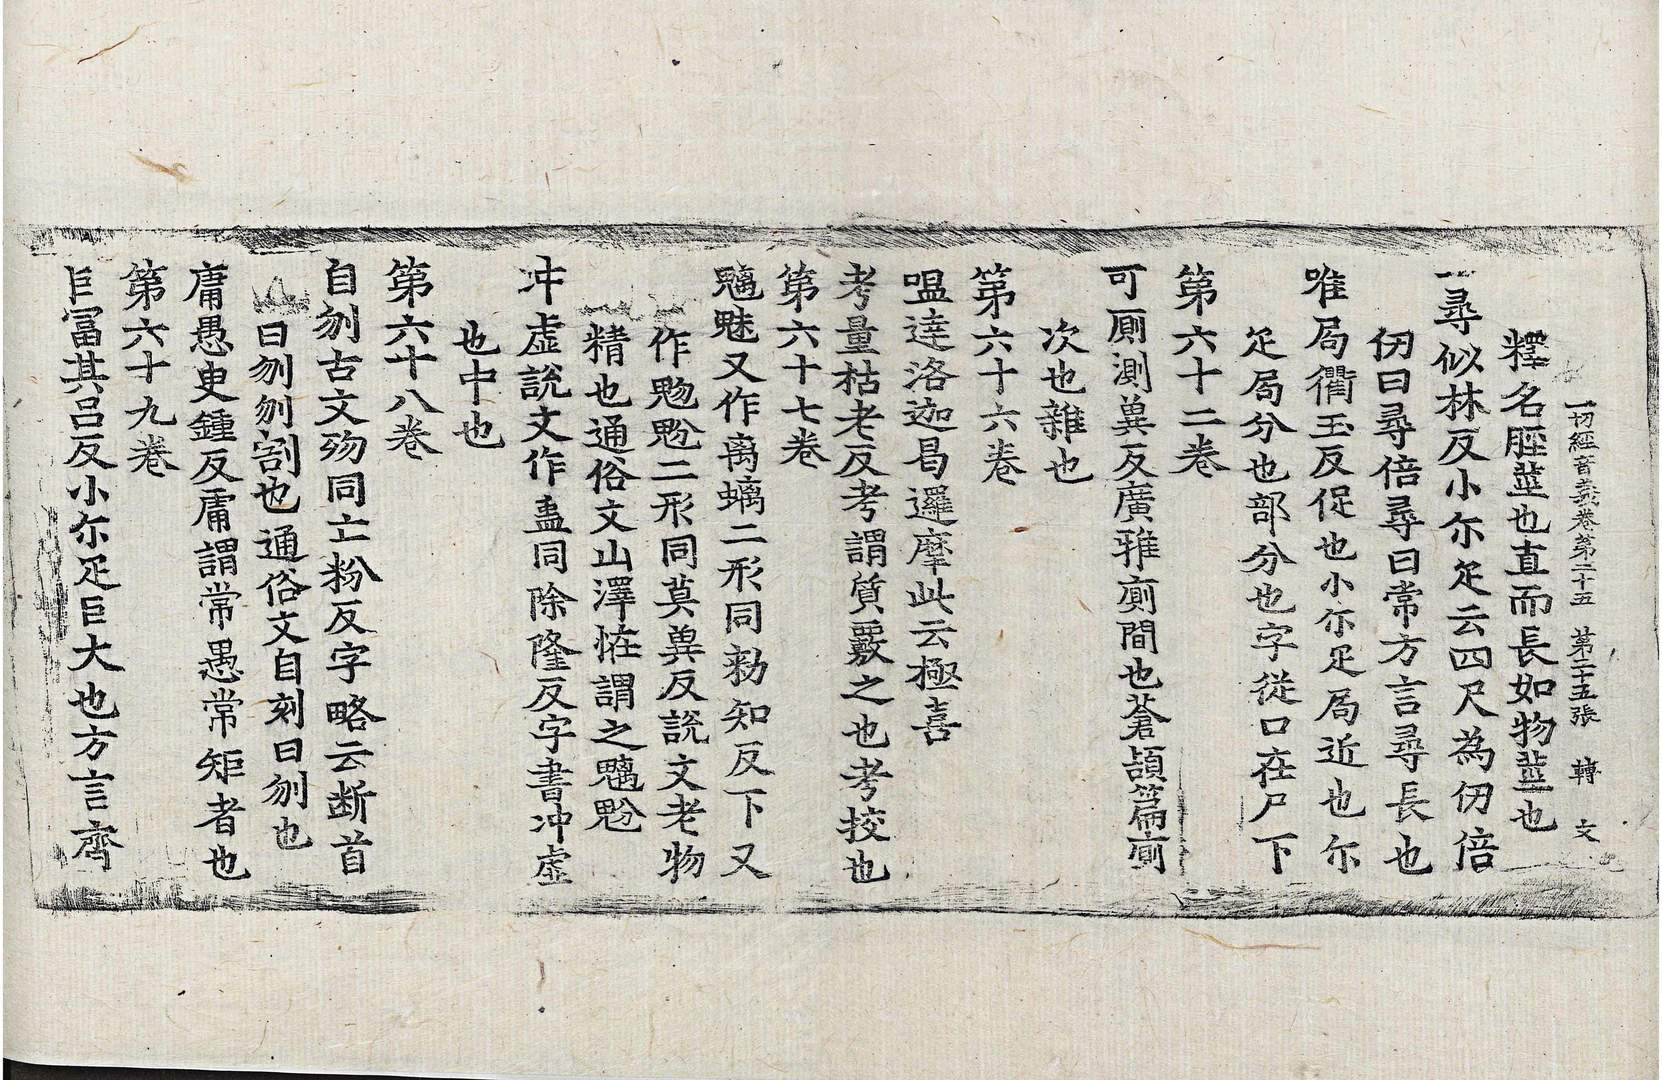 一切經音義卷第二十五 第二十五張 轉 文
釋名脛莖也直而長如物莖也
一尋似林反小尒疋云四尺為仞倍
仞曰尋倍尋曰常方言尋長也
唯局衢玉反促也小尒疋局近也尒
疋局分也部分也字從口在尸下
第六十二卷
可厠測冀反廣雅廁間也蒼頡篇廁
次也雜也
第六十六卷
嗢達洛迦曷邏摩此云極喜
考量枯老反考謂質覈之也考挍也
第六十七卷
魑魅又作离螭二形同勑知反下又
作鬽二形同莫冀反說文老物
精也通俗文山澤恠謂之魑
冲虛說文作盅同除隆反字書冲虛
也中也
第六十八卷
自刎古文歾同亡粉反字略云断首
曰刎刎割也通俗文自刻曰刎也
庸愚臾鍾反庸謂常愚常矩者也
第六十九卷
巨富其呂反小尒疋巨大也方言齊